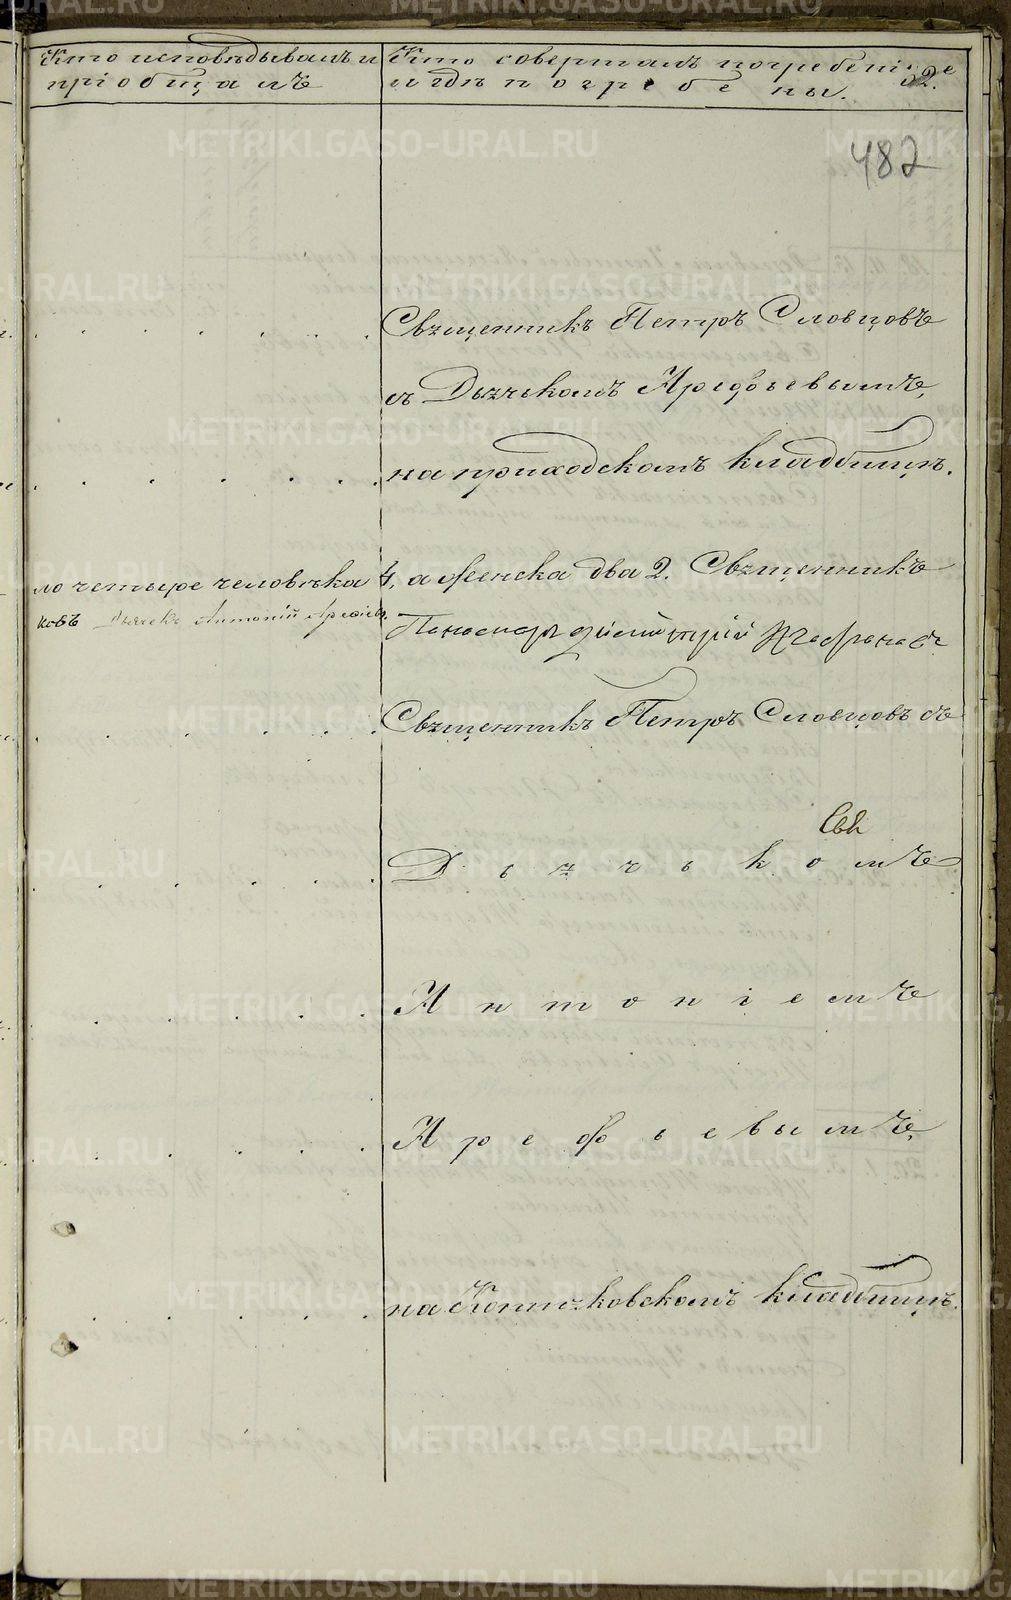 Кто исповѣдывалъ и
пріобщалъ
Кто совершалъ погребеніе
и гдѣ погребены.
52.
482
Священникъ Петръ Словцовъ
съ Дьячькомъ Арефьевымъ,
на приходскомъ кладбищѣ.
ло четыре человѣка 4, а женска два 2. Священникъ
ковъ Дьячекъ Антоній Арефіевъ.
Пономарь Димитрій
Священникъ Петръ Словцовъ съ
Дьячькомъ
Антоніемъ
Арефьевымъ,
на Коптяковскомъ кладбищѣ.
METRIKI.GASO-URAL.RU